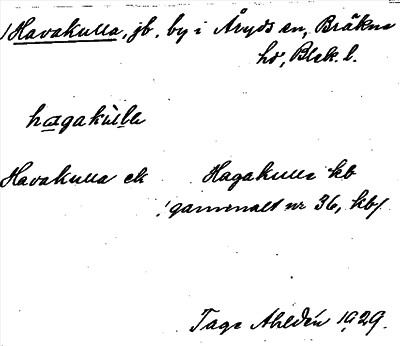 Havakulla, jb. by i Åryds sn, Bräkne
hd, Blek. l.
hagakulle
Havakulla ek Hagakulle kb
(gammalt nr 36, kb)
Tage Ahldén 1929.